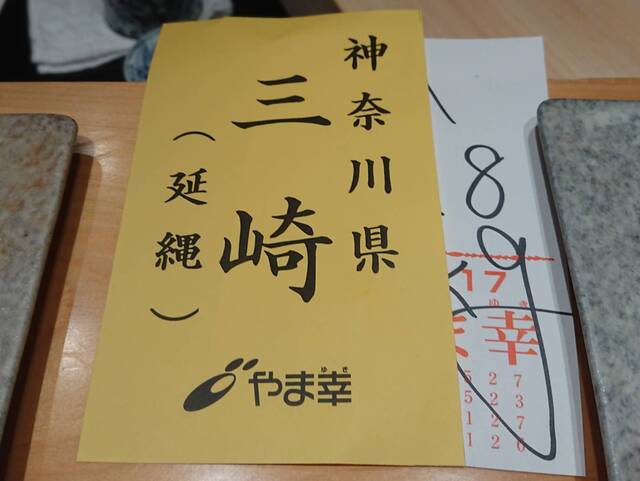 神奈川県
三崎
（延縄）
ゆき
やま幸
89
17
ゆき
ま幸
7
3
7
6
2
2
2
2
5
5
1
1